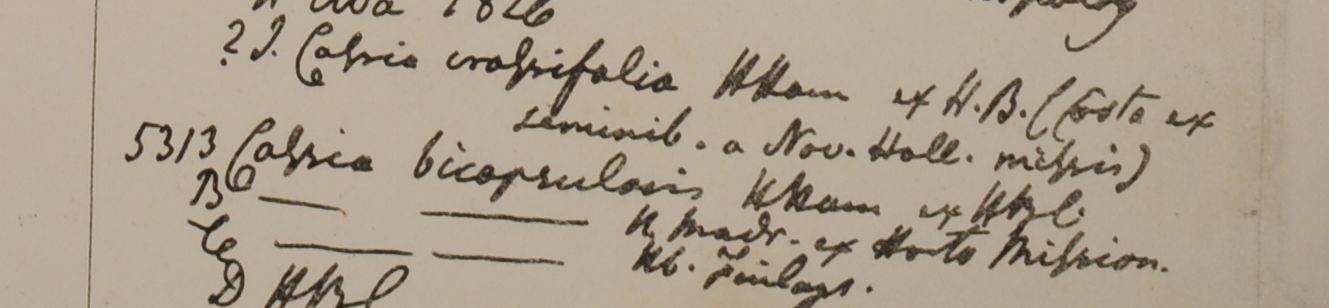 H. Ava 1826
? J. Cassia crassifolia HHam ex H.B. (Costa ex
seminib. a Nov. Holl. missis)
5313 Cassia bicapsularis HHam ex HBC.
B — — H. Madr. ex Horto Mission.
C — — Hb. Finlays.
D HBC